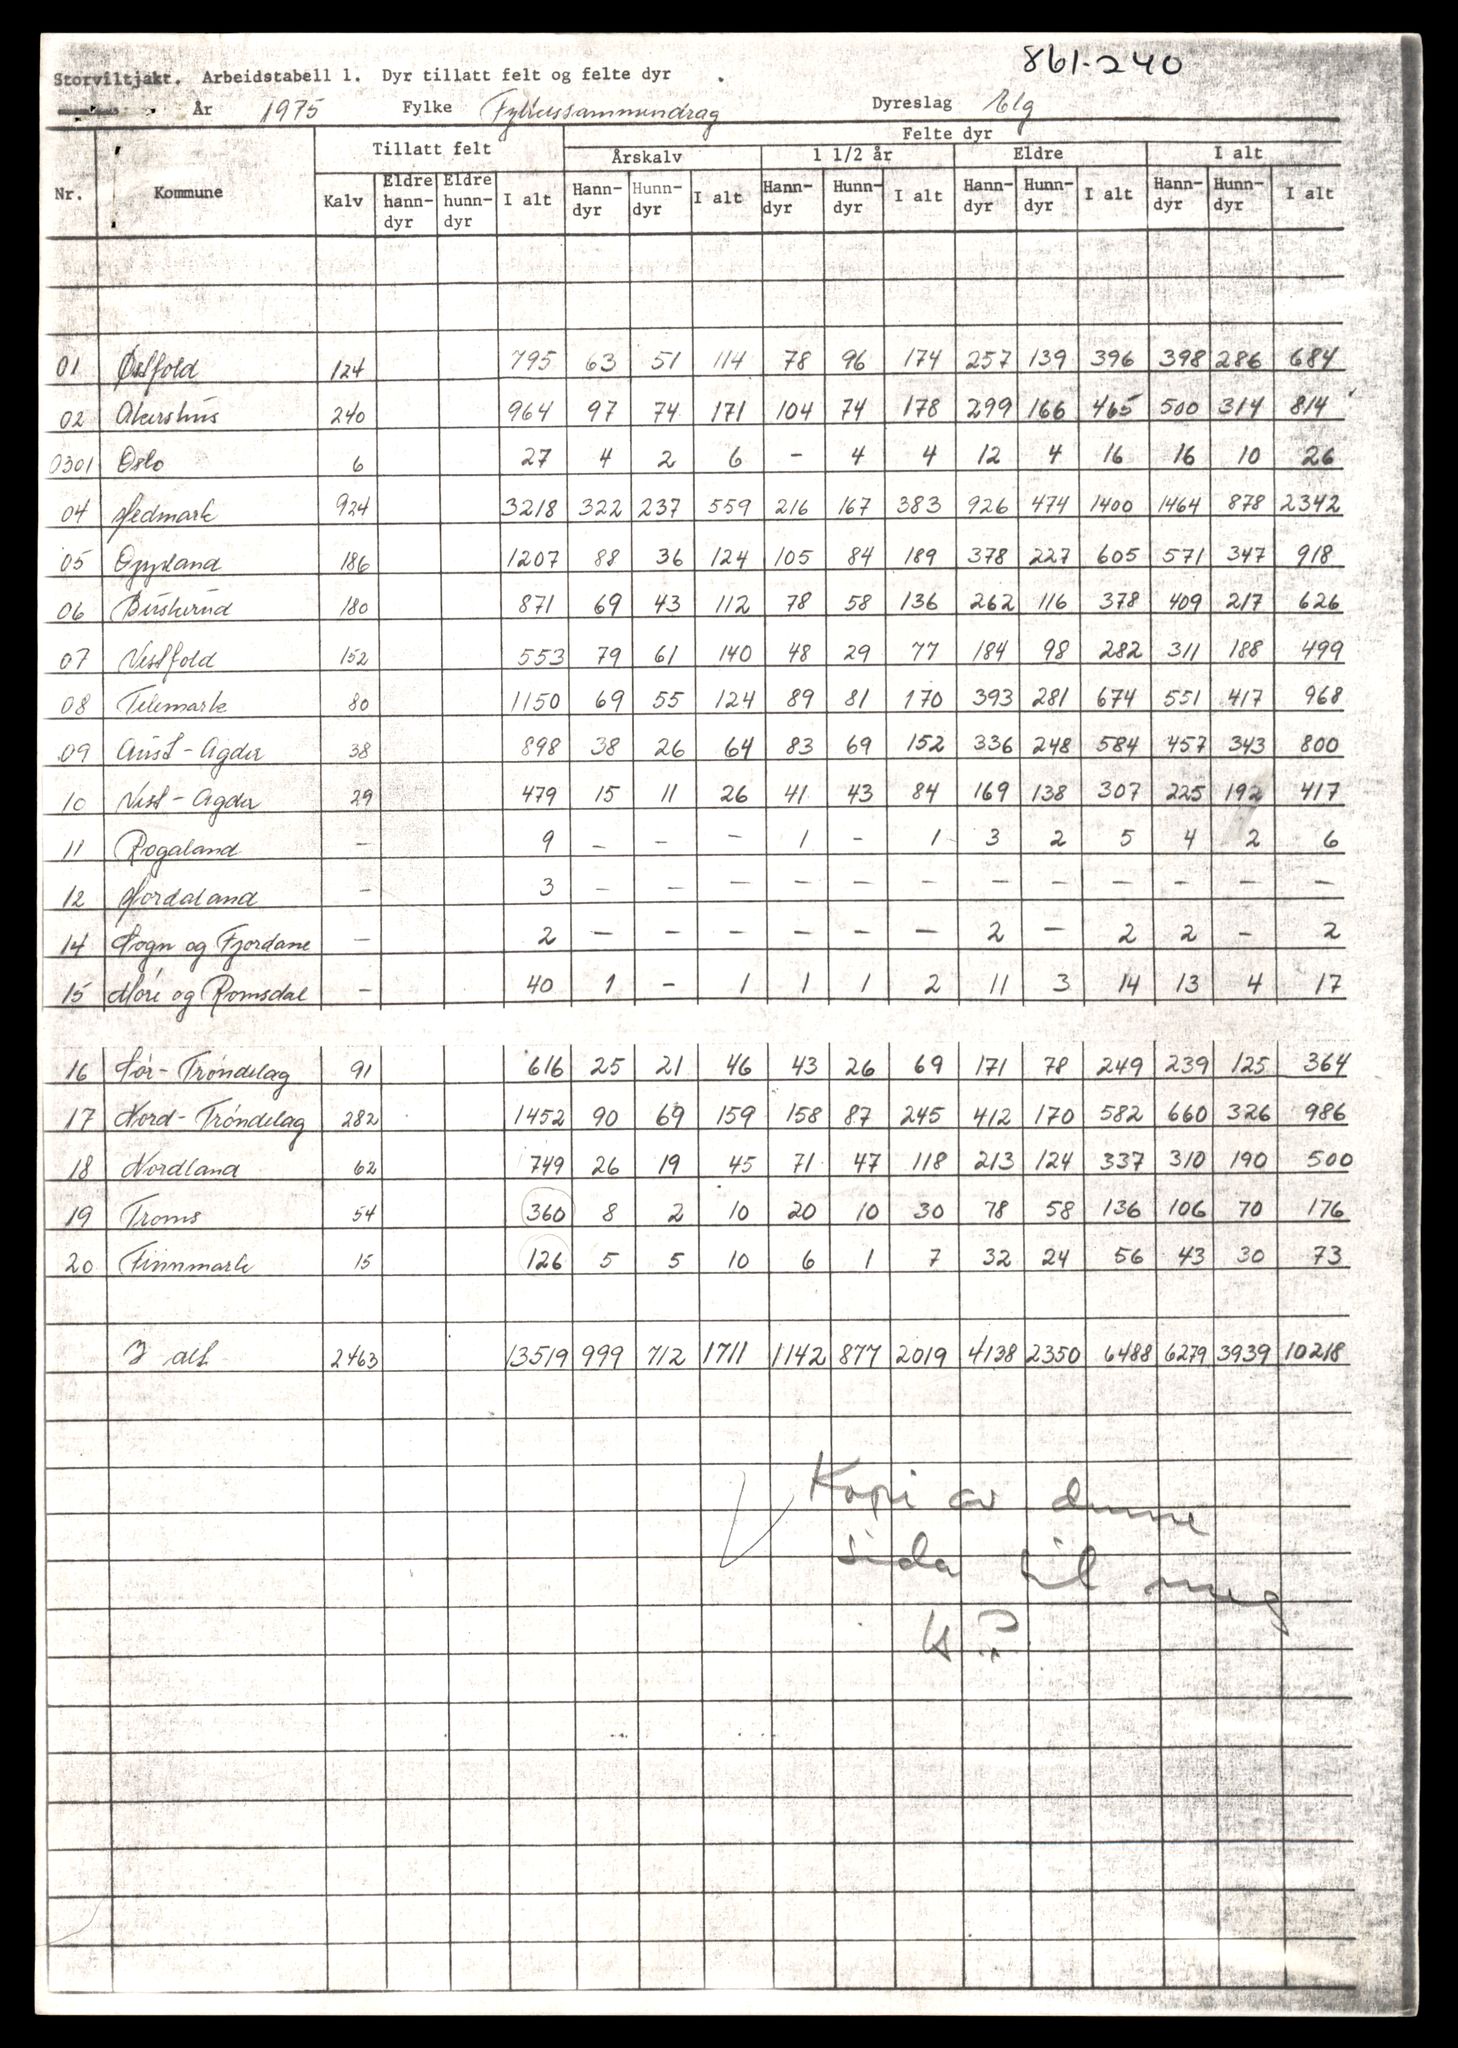 861-240
Storviltjakt. Arbeidstabell 1. Dyr tillatt felt og felte dyr
År 1975 Fylke Fylkessammendrag Dyreslag Elg
Felte dyr
Tillatt felt Årskalv 1 1/2 år Eldre I alt
Nr. Kommune Kalv Eldre hann-dyr Eldre hunn-dyr I alt Hann-dyr Hunn-dyr I alt Hann-dyr Hunn-dyr I alt Hann-dyr Hunn-dyr I alt Hann-dyr Hunn-dyr I alt
01 Østfold 124 795 63 51 114 78 96 174 257 139 396 398 286 684
02 Akershus 240 964 97 74 171 104 74 178 299 166 465 500 314 814
0301 Oslo 6 27 4 2 6 – 4 4 12 4 16 16 10 26
04 Hedmark 924 3218 322 237 559 216 167 383 926 474 1400 1464 878 2342
05 Oppland 186 1207 88 36 124 105 84 189 378 227 605 571 347 918
06 Buskerud 180 871 69 43 112 78 58 136 262 116 378 409 217 626
07 Vestfold 152 553 79 61 140 48 29 77 184 98 282 311 188 499
08 Telemark 80 1150 69 55 124 89 81 170 393 281 674 551 417 968
09 Aust-Agder 38 898 38 26 64 83 69 152 336 248 584 457 343 800
10 Vest-Agder 29 479 15 11 26 41 43 84 169 138 307 225 192 417
11 Rogaland – 9 – – – 1 – 1 3 2 5 4 2 6
12 Hordaland – 3 – – – – – – – – – – – –
14 Sogn og Fjordane – 2 – – – – – – 2 – 2 2 – 2
15 Møre og Romsdal – 40 1 – 1 1 1 2 11 3 14 13 4 17
16 Sør-Trøndelag 91 616 25 21 46 43 26 69 171 78 249 239 125 364
17 Nord-Trøndelag 282 1452 90 69 159 158 87 245 412 170 582 660 326 986
18 Nordland 62 749 26 19 45 71 47 118 213 124 337 310 190 500
19 Troms 54 360 8 2 10 20 10 30 78 58 136 106 70 176
20 Finnmark 15 126 5 5 10 6 1 7 32 24 56 43 30 73
I alt 2463 13519 999 712 1711 1142 877 2019 4138 2350 6488 6279 3939 10218
Kopi av denne
sida til meg